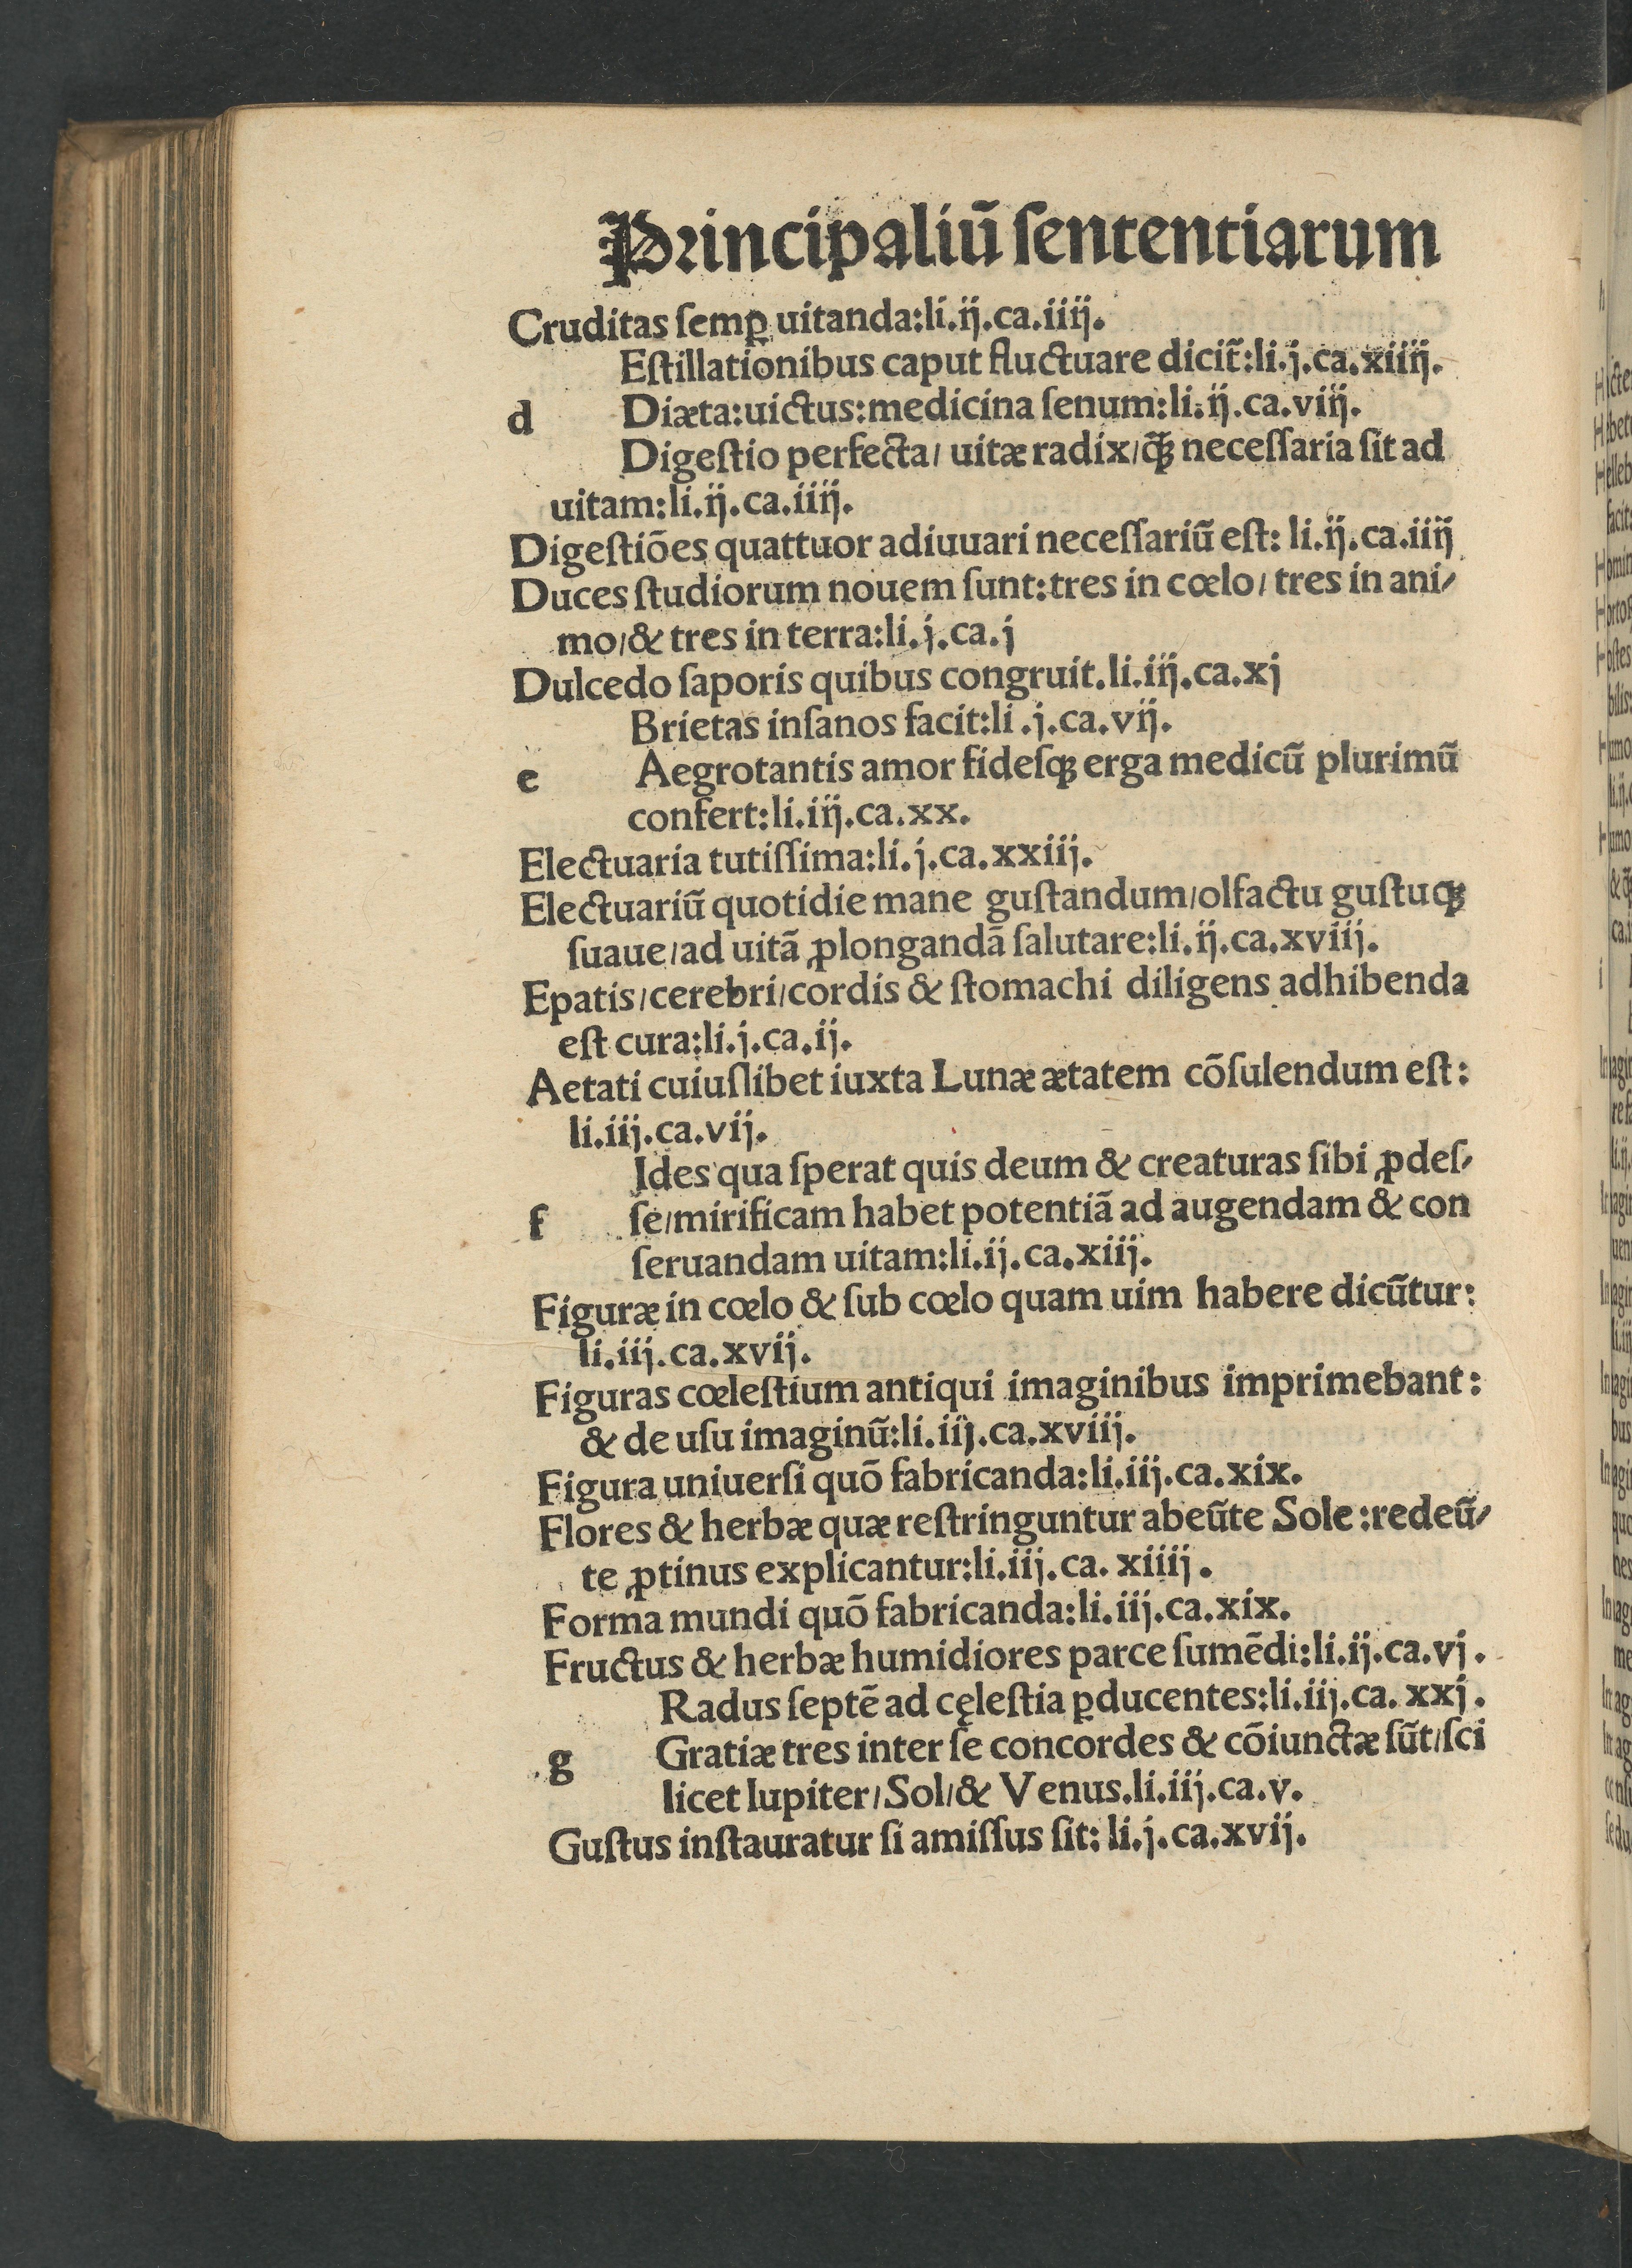 Principaliū ſententiarum
Cruditas ſemꝑ uitanda:li.ij.ca.iiij.
Eſtillationibus caput fluctuare dicit̃:li.j.ca.xiiij.
d Diæta:uictus:medicina ſenum:li.ij.ca.viij.
Digeſtio perfecta/ uitæ radix/q̃ꝫ neceſſaria ſit ad
uitam:li.ij.ca.iiij.
Digeſtiões quattuor adiuuari neceſſariũ eſt: li.ij.ca.iiij
Duces ſtudiorum nouem ſunt:tres in cœlo/ tres in ani/
mo/& tres in terra:li.j.ca.j
Dulcedo ſaporis quibus congruit.li.iij.ca.xj
Brietas inſanos facit:li.j.ca.vij.
e Aegrotantis amor fideſqꝫ erga medicũ plurimũ
confert:li.iij.ca.xx.
Electuaria tutiſſima:li.j.ca.xxiij.
Electuariũ quotidie mane guſtandum/olfactu guſtuqꝫ
ſuaue/ad uitã ꝓlongandã ſalutare:li.ij.ca.xviij.
Epatis/cerebri/cordis & ſtomachi diligens adhibenda
eſt cura:li.j.ca.ij.
Aetati cuiuſlibet iuxta Lunæ ætatem cõſulendum eſt:
li.iij.ca.vij.
Ides qua ſperat quis deum & creaturas ſibi ꝓdeſ/
f ſe/mirificam habet potentiã ad augendam & con
ſeruandam uitam:li.ij.ca.xiij.
Figuræ in cœlo & ſub cœlo quam uim habere dicũtur:
li.iij.ca.xvij.
Figuras cœleſtium antiqui imaginibus imprimebant:
& de uſu imaginũ:li.iij.ca.xviij.
Figura uniuerſi quõ fabricanda:li.iij.ca.xix.
Flores & herbæ quæ reſtringuntur abeũte Sole:redeũ/
te ꝓtinus explicantur:li.iij.ca.xiiij.
Forma mundi quõ fabricanda:li.iij.ca.xix.
Fructus & herbæ humidiores parce ſumẽdi:li.ij.ca.vj.
Radus ſeptẽ ad cęleſtia ꝑducentes:li.iij.ca.xxj.
g Gratiæ tres inter ſe concordes & cõiunctæ ſũt/ſci
licet Iupiter/Sol/& Venus.li.iij.ca.v.
Guſtus inſtauratur ſi amiſſus ſit: li.j.ca.xvij.